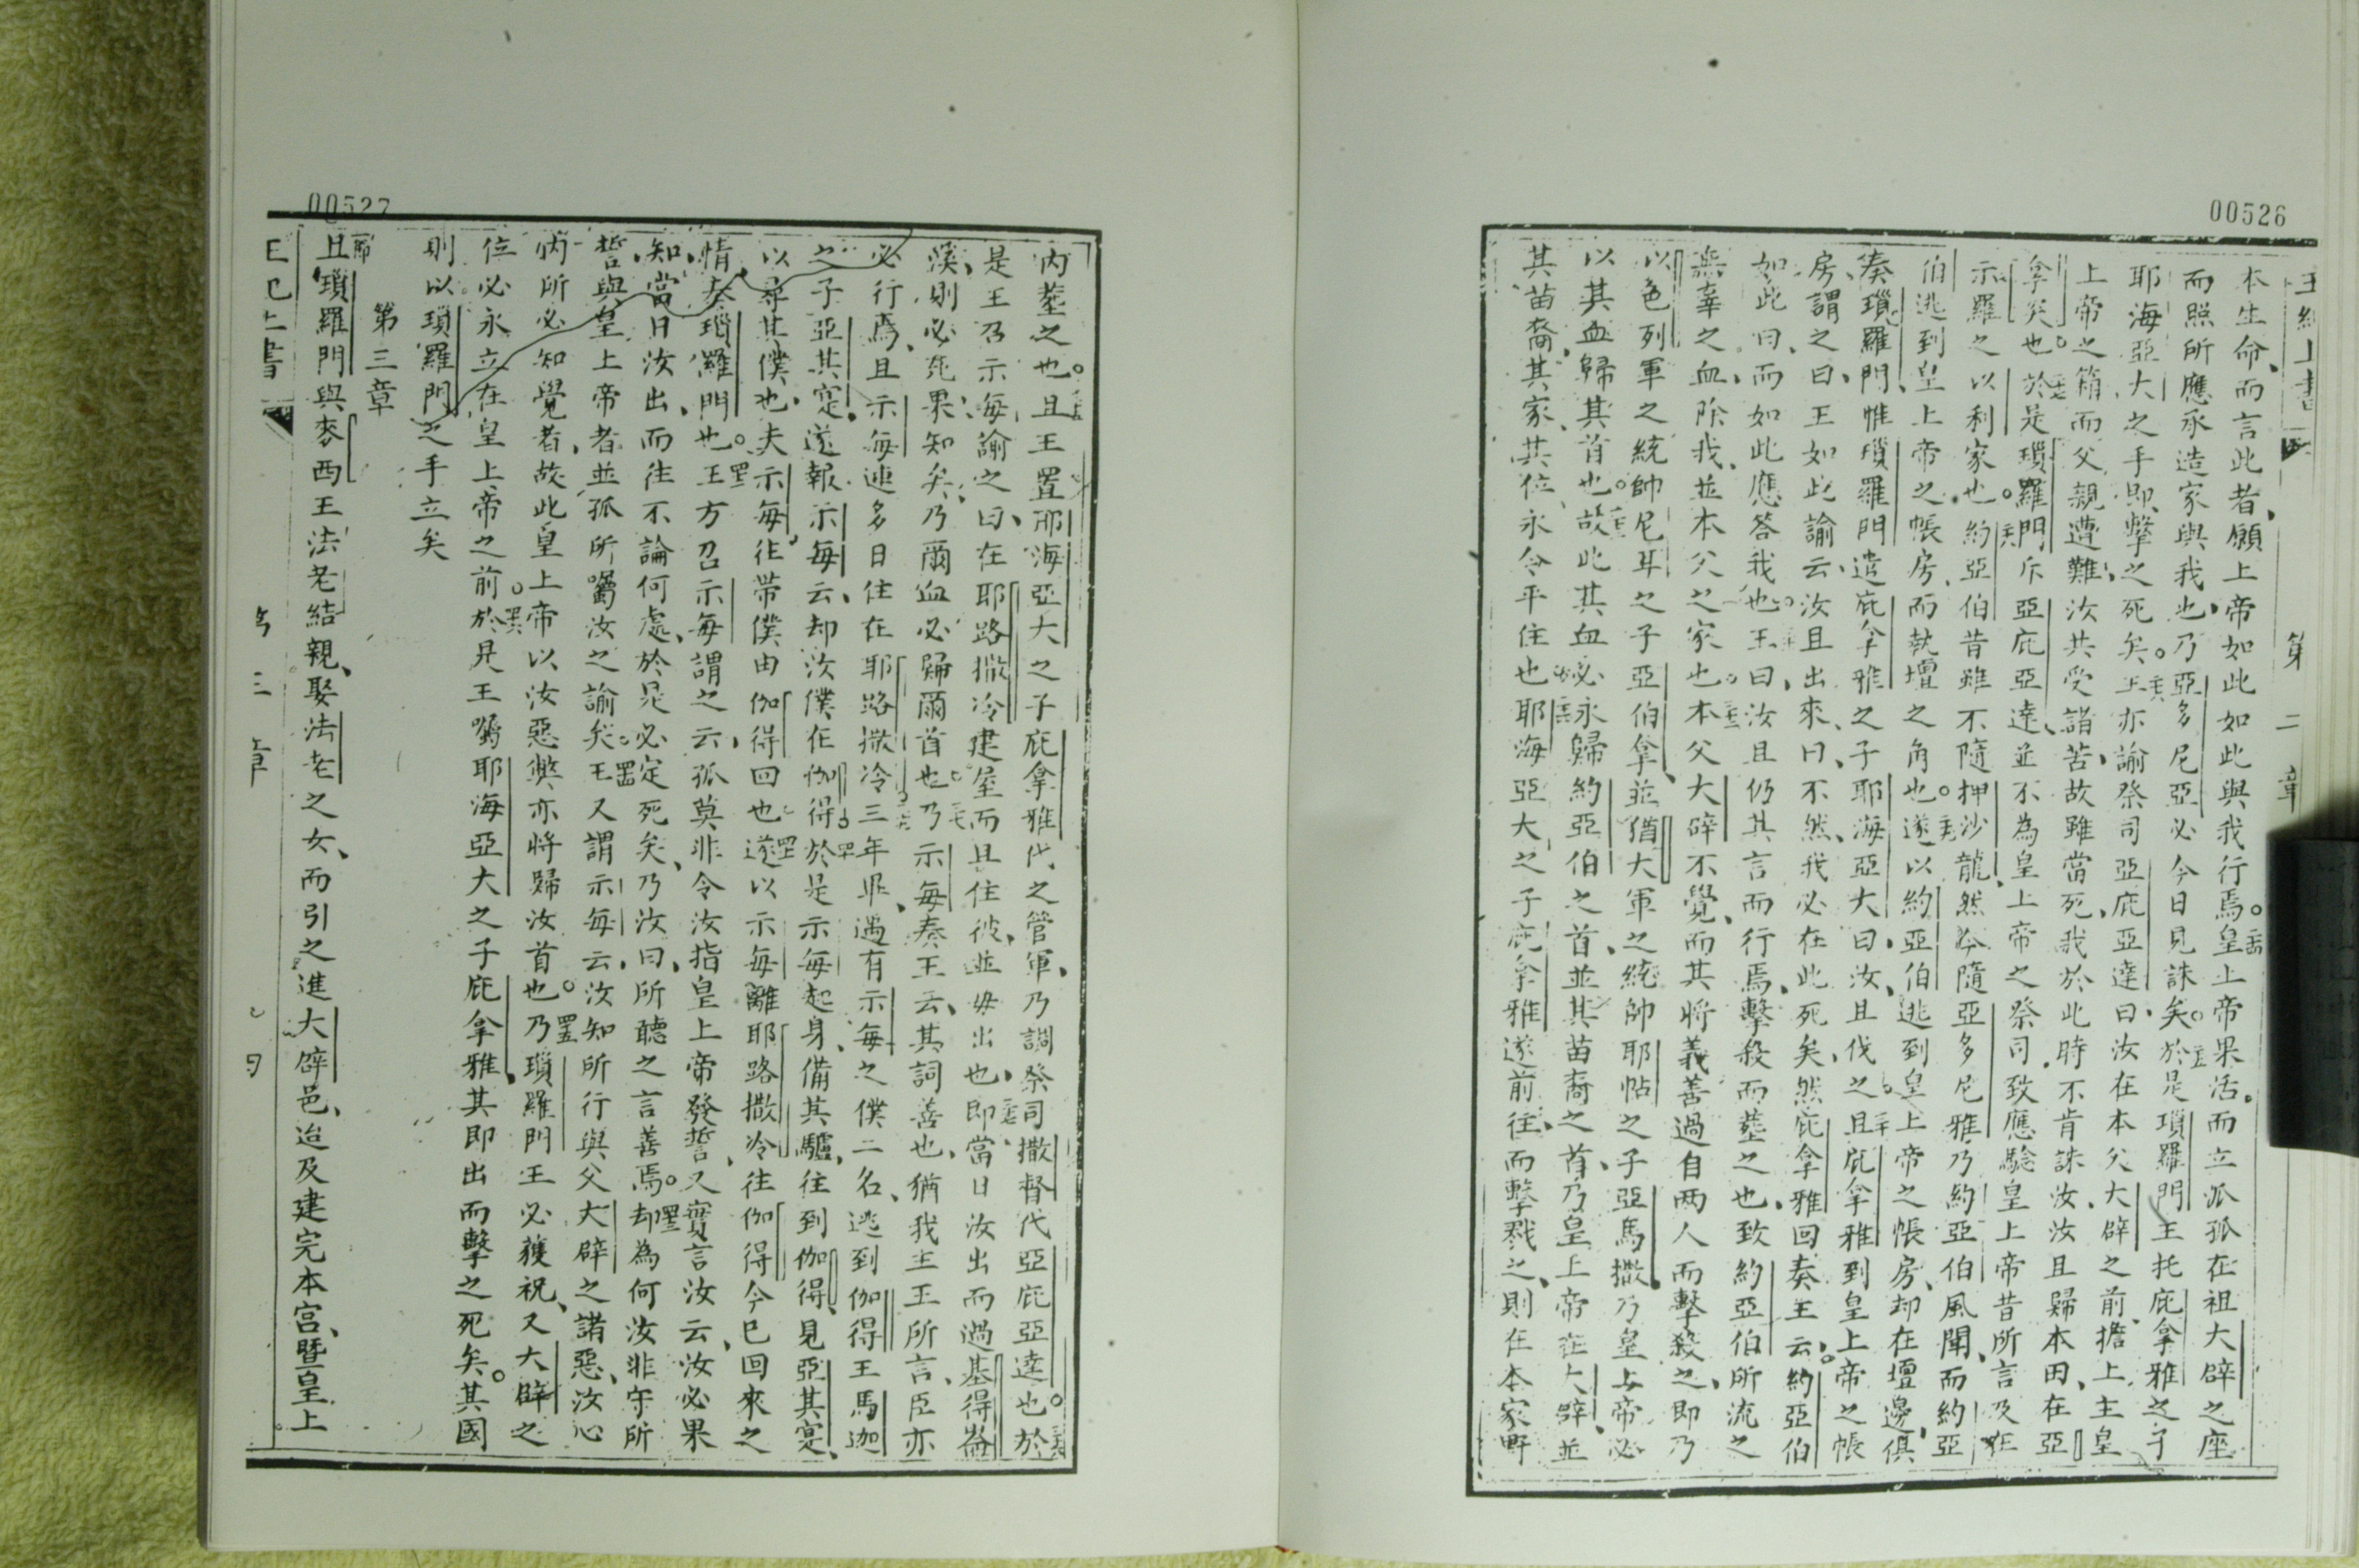 00526
王紀上書
第二章
本生命、而言此者、願上帝如此如此與我行焉。皇上帝果活。而立孤在祖大辟之座
而照所應承造家與我也、乃亞多尼亞必今日見誅矣。於是瑣羅門王托庇拿雅之子
耶海亞大之手即擊之死矣。王亦諭祭司亞庇亞達曰、汝在本父大辟之前、擔上主皇
上帝之箱而父親遭難、汝共受諸苦、故雖當死、我於此時不肯誅汝、汝且歸本田、在亞
拿矣也。於是瑣羅門斥亞庇亞達、並不為皇上帝之祭司、致應驗皇上帝昔所言及在
示羅之以利家也。約亞伯昔雖不隨押沙龍、然今隨亞多尼雅、乃約亞伯風聞、而約亞
伯逃到皇上帝之帳房、而執壇之角也。遂以約亞伯逃到皇上帝之帳房、却在壇邊、俱
奏瑣羅門、惟瑣羅門遣庇拿雅之子耶海亞大曰、汝且伐之、且庇拿雅到皇上帝之帳
房、謂之曰、王如此諭云、汝且出來、曰、不然、我必在此死矣、然庇拿雅回奏王云、約亞伯
如此曰、而如此應答我也。王曰、汝且仍其言而行焉、擊殺而塟之也、致約亞伯所流之
無辜之血、除我、並本父之家也。本父大辟不覺、而其將義善過自兩人而擊殺之、即乃
以色列軍之統帥尼耳之子亞伯拿、並猶大軍之統帥耶帖之子亞馬撒、乃皇上帝必
以其血歸其首也。故此其血必永歸約亞伯之首、並其苗裔之首、乃皇上帝在大辟、並
其苗裔、其家、其位、永令平住也。耶海亞大之子庇拿雅遂前往、而擊戮之、則在本家野
00527
內塟之也。且王置耶海亞大之子庇拿雅代之管軍、乃調祭司撒督代亞庇亞達也。於
是王乃示每諭之曰、在耶路撒冷建屋而且住彼、並毋出也、即當日汝出而過基得崙
溪、則必死、果知矣、乃爾血必歸爾首也。乃示每奏王云、其詞善也、猶我主王所言、臣亦
必行焉、且示每連多日住在耶路撒冷三年畢、遇有示每之僕二名、逃到伽得王馬迦
之子亞其寔、遂報示每云、却汝僕在伽得、於是示每起身、備其驢、往到伽得、見亞其寔、
以尋其僕也、夫示每往帶僕由伽得回也。遂以示每離耶路撒冷往伽得今已回來之
情奏瑣羅門也。王方召示每謂之云、孤莫非令汝指皇上帝發誓、又實言汝云、汝必果
知、當日汝出、而往不論何處、於是必定死矣、乃汝曰、所聽之言善焉。却為何汝非守所
誓與皇上帝者、並孤所囑汝之諭矣。王又謂示每云、汝知所行與父大辟之諸惡、汝心
內所必知覺者、故此皇上帝以汝惡獘亦將歸汝首也。乃瑣羅門王必獲祝、又大辟之
位必永立在皇上帝之前。於是王囑耶海亞大之子庇拿雅、其即出而擊之死矣。其國
則以瑣羅門之手立矣
第三章
且瑣羅門與麥西王法老結親、娶法老之女、而引之進大辟邑、迨及建完本宮、暨皇上